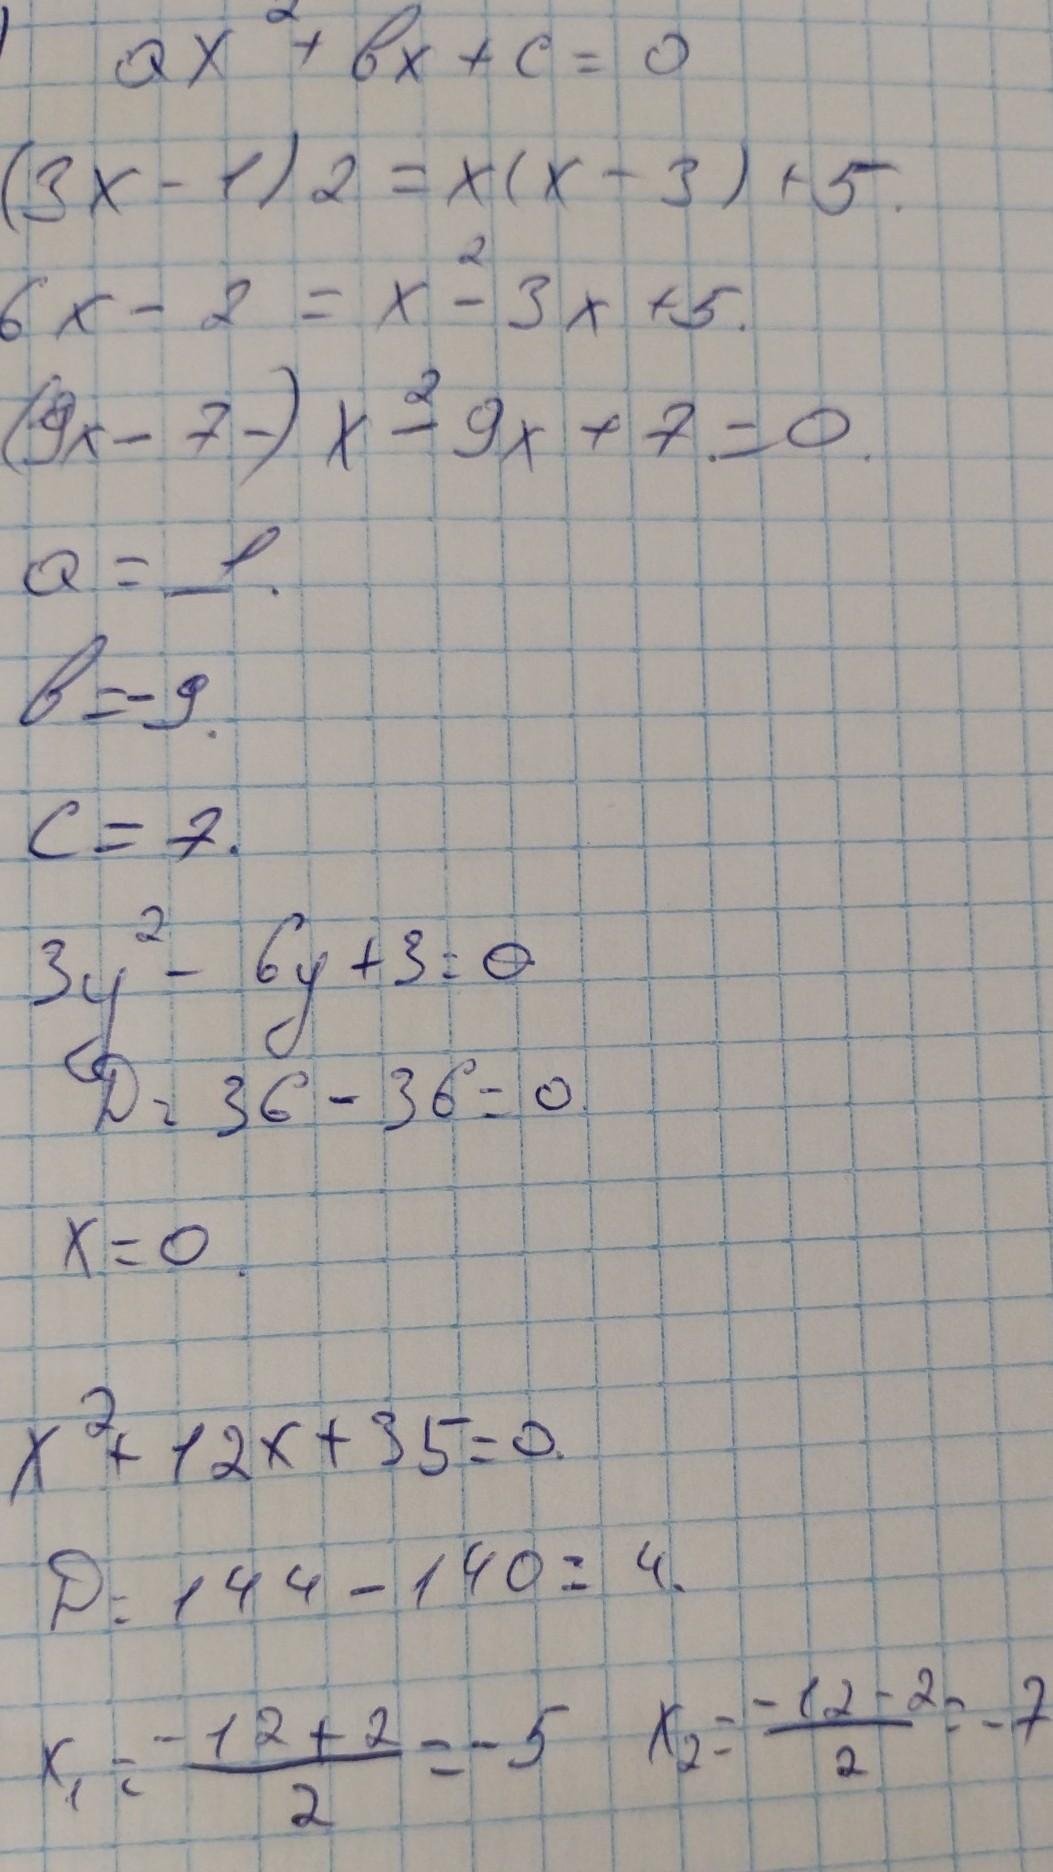 ax² + bx + c = 0
(3x - 1)2 = x(x - 3) + 5.
6x - 2 = x² - 3x + 5.
(9x - 7 -) x² - 9x + 7 = 0.
a = 1.
b = -9.
c = 7.
3y² - 6y + 3 = 0
D = 36 - 36 = 0
x = 0.
x² + 12x + 35 = 0.
D = 144 - 140 = 4.
x₁ = (-12 + 2)/2 = -5 x₂ = (-12 - 2)/2 = -7